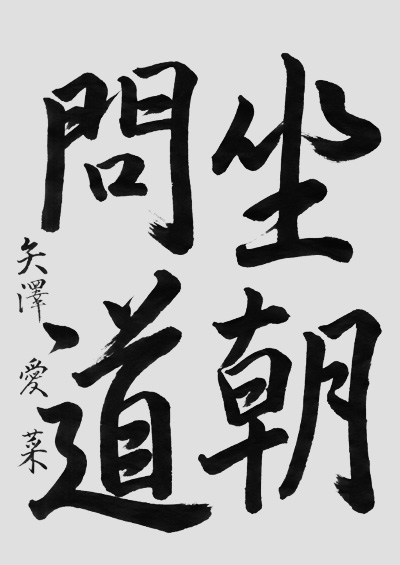 坐朝
問道
矢澤愛菜